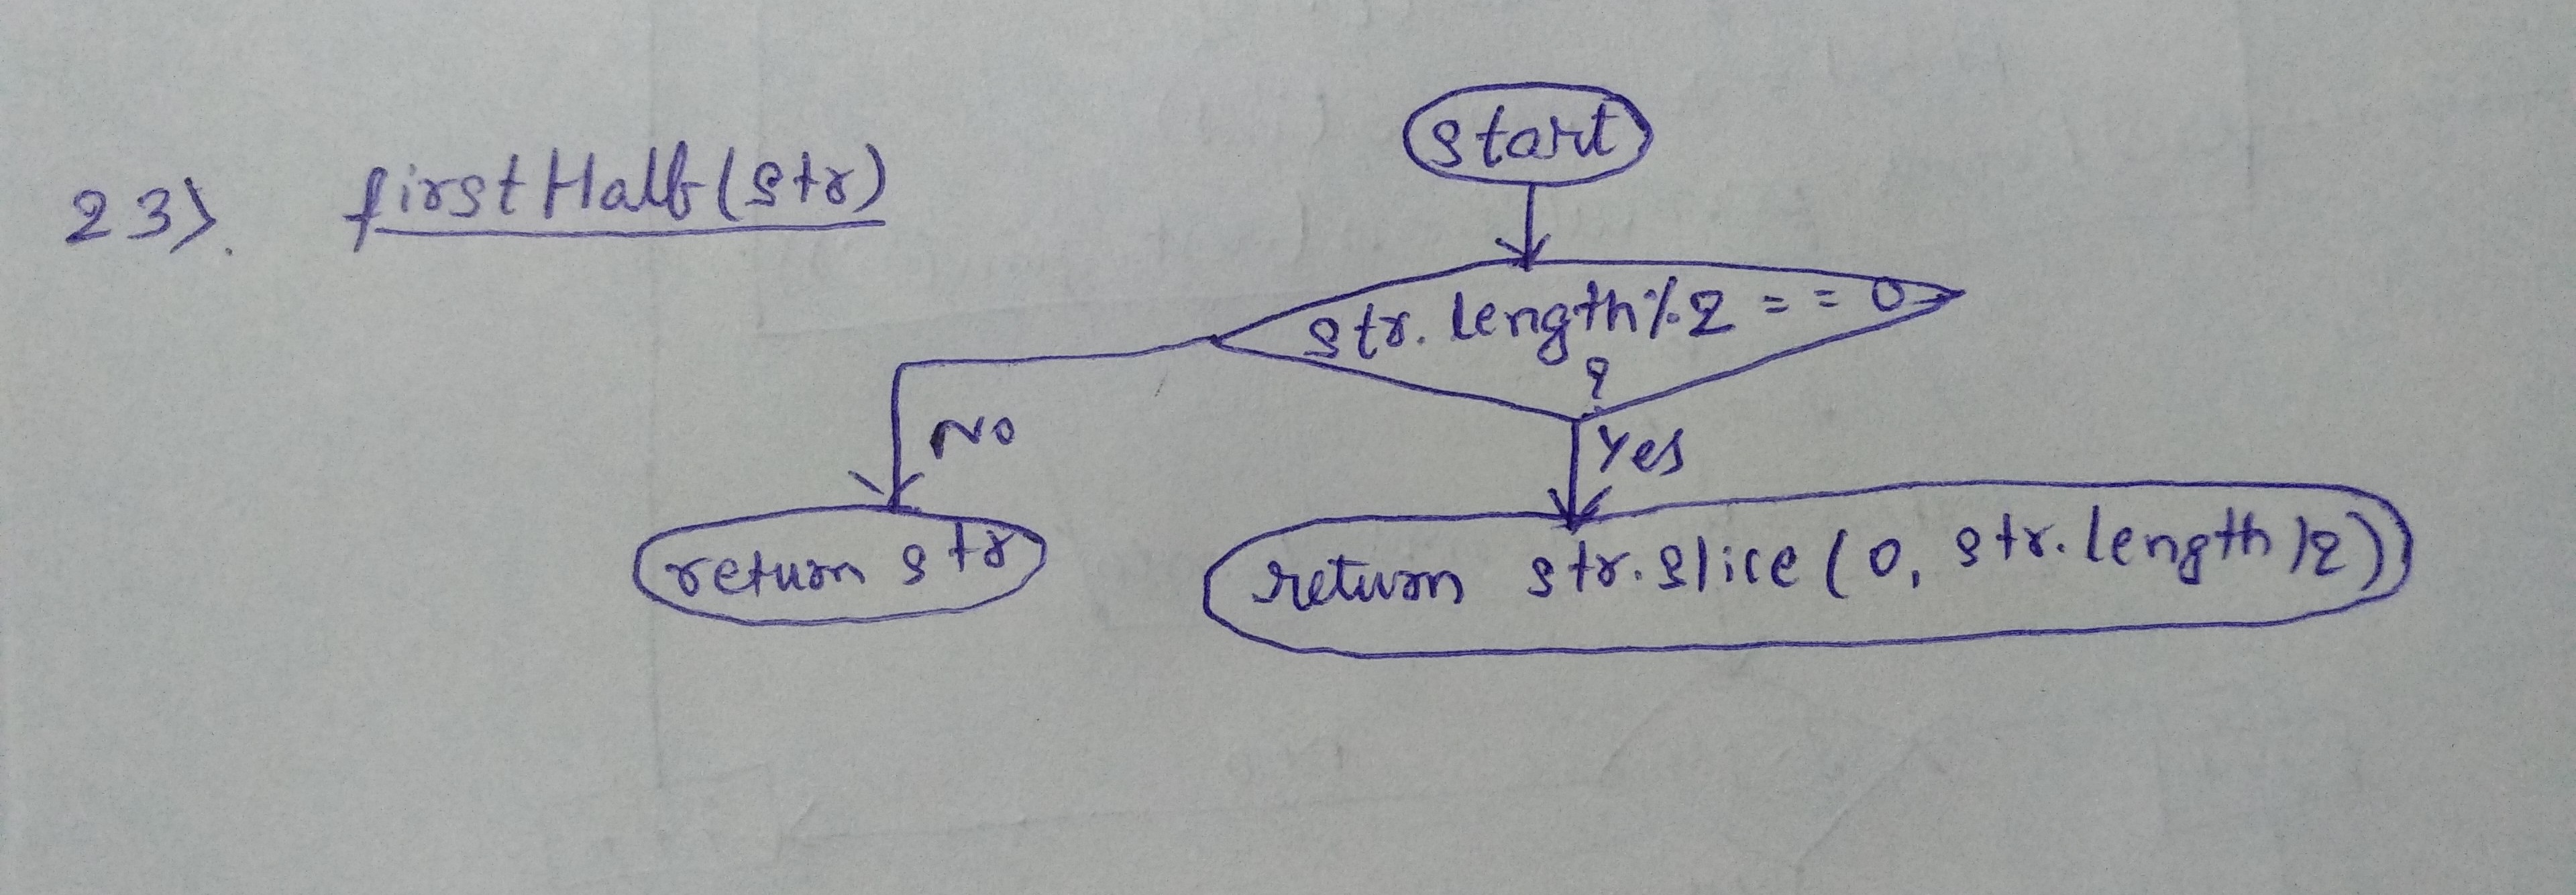 start
23). firstHalf(str)
str.length%2 == 0
?
No
Yes
return str
return str.slice(0, str.length/2)